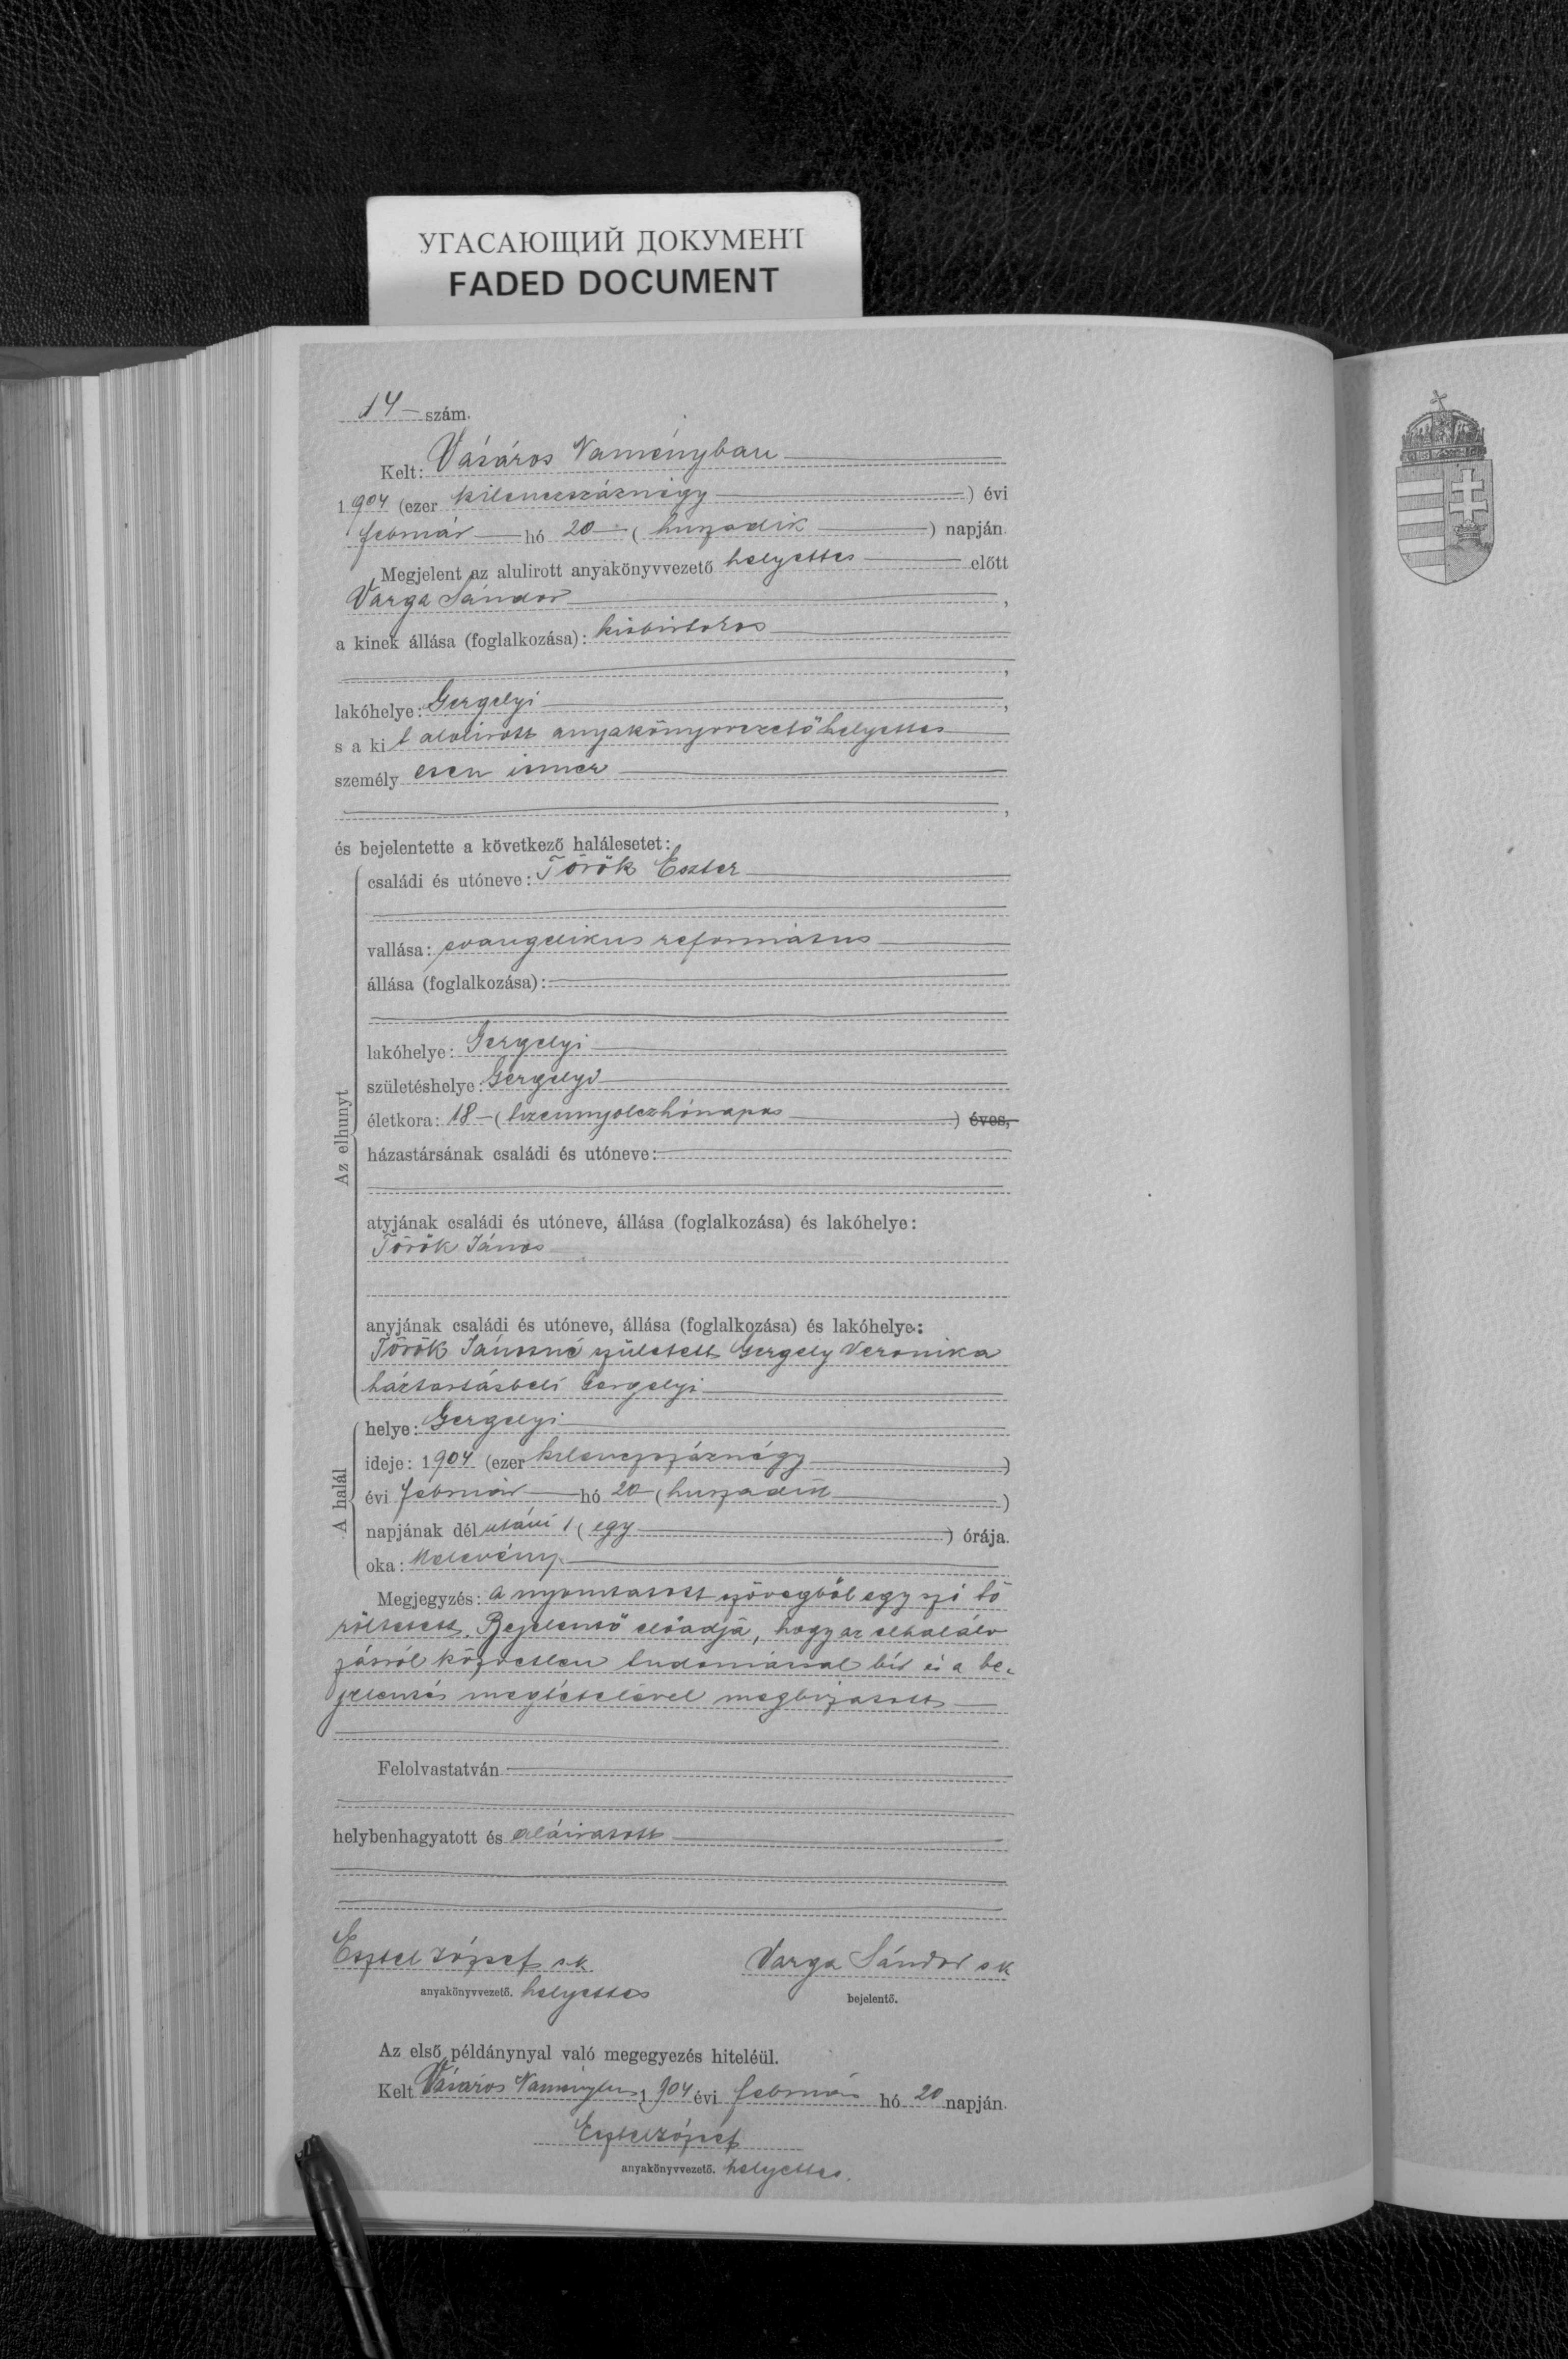 УГАСАЮЩИЙ ДОКУМЕНТ
FADED DOCUMENT
14 szám.
Kelt: Vásáros Naményban
1904 (ezer kilenczszáznégy) évi
február hó 20 (huszadik) napján.
Megjelent az alulirott anyakönyvvezető helyettes előtt
Varga Sándor,
a kinek állása (foglalkozása): kisbirtokos
,
lakóhelye: Gergelyi,
s a kit alolirott anyakönyvvezető helyettes
személyesen ismer
,
és bejelentette a következő halálesetet:
Az elhunyt
családi és utóneve: Török Eszter
vallása: evangelikus református
állása (foglalkozása):
lakóhelye: Gergelyi
születéshelye: Gergelyi
életkora: 18 (tizennyolcz hónapos) éves,
házastársának családi és utóneve:
atyjának családi és utóneve, állása (foglalkozása) és lakóhelye:
Török János
anyjának családi és utóneve, állása (foglalkozása) és lakóhelye:
Török Jánosné született Gergely Veronika
háztartásbeli Gergelyi
A halál
helye: Gergelyi
ideje: 1904 (ezer kilenczszáznégy)
évi február hó 20 (huszadik)
napjának dél utáni 1 (egy) órája.
oka: Kelevény
Megjegyzés: A nyomtatott szövegből egy szó tö
röltetett. Bejelentő előadja, hogy az elhaláló
zásról közvetlen tudomással bír és a be-
jelentés megtételével megbizatott
Felolvastatván
helybenhagyatott és aláiratott
József sk Varga Sándor sk
anyakönyvvezető. helyettes bejelentő.
Az első példánynyal való megegyezés hiteléül.
Kelt Vásáros Naményban 1904 évi február hó 20 napján.
József
anyakönyvvezető. helyettes.